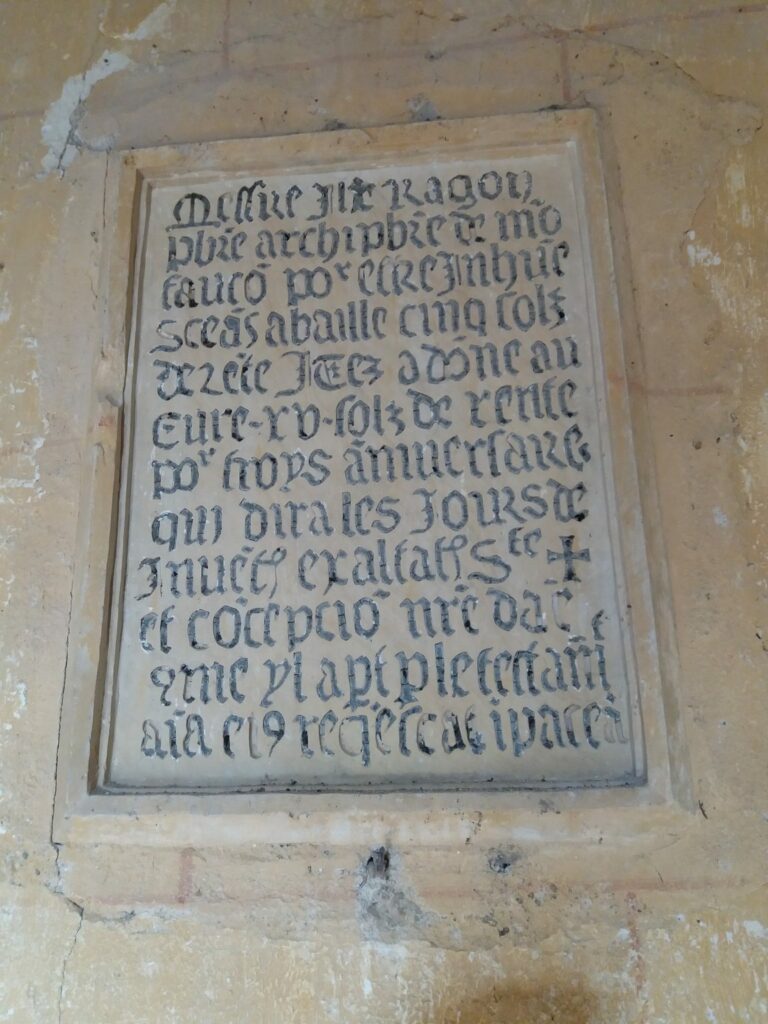 Messire JHr Ragon
pbrē archipbrē de mō
faucō poʳ estre Jnhūe
Sceās abaille cinq solz
de rēte JTez a dōne au
Cure·xv·solz de rente
poʳ troys ānniversaire
qui dira les Jours de
Jnuēt exaltat Sᵗᵉ ✠
et cōcepciō nrē da
9me yl apt p le testamt
aīa ei9 reqēscat i pace ā